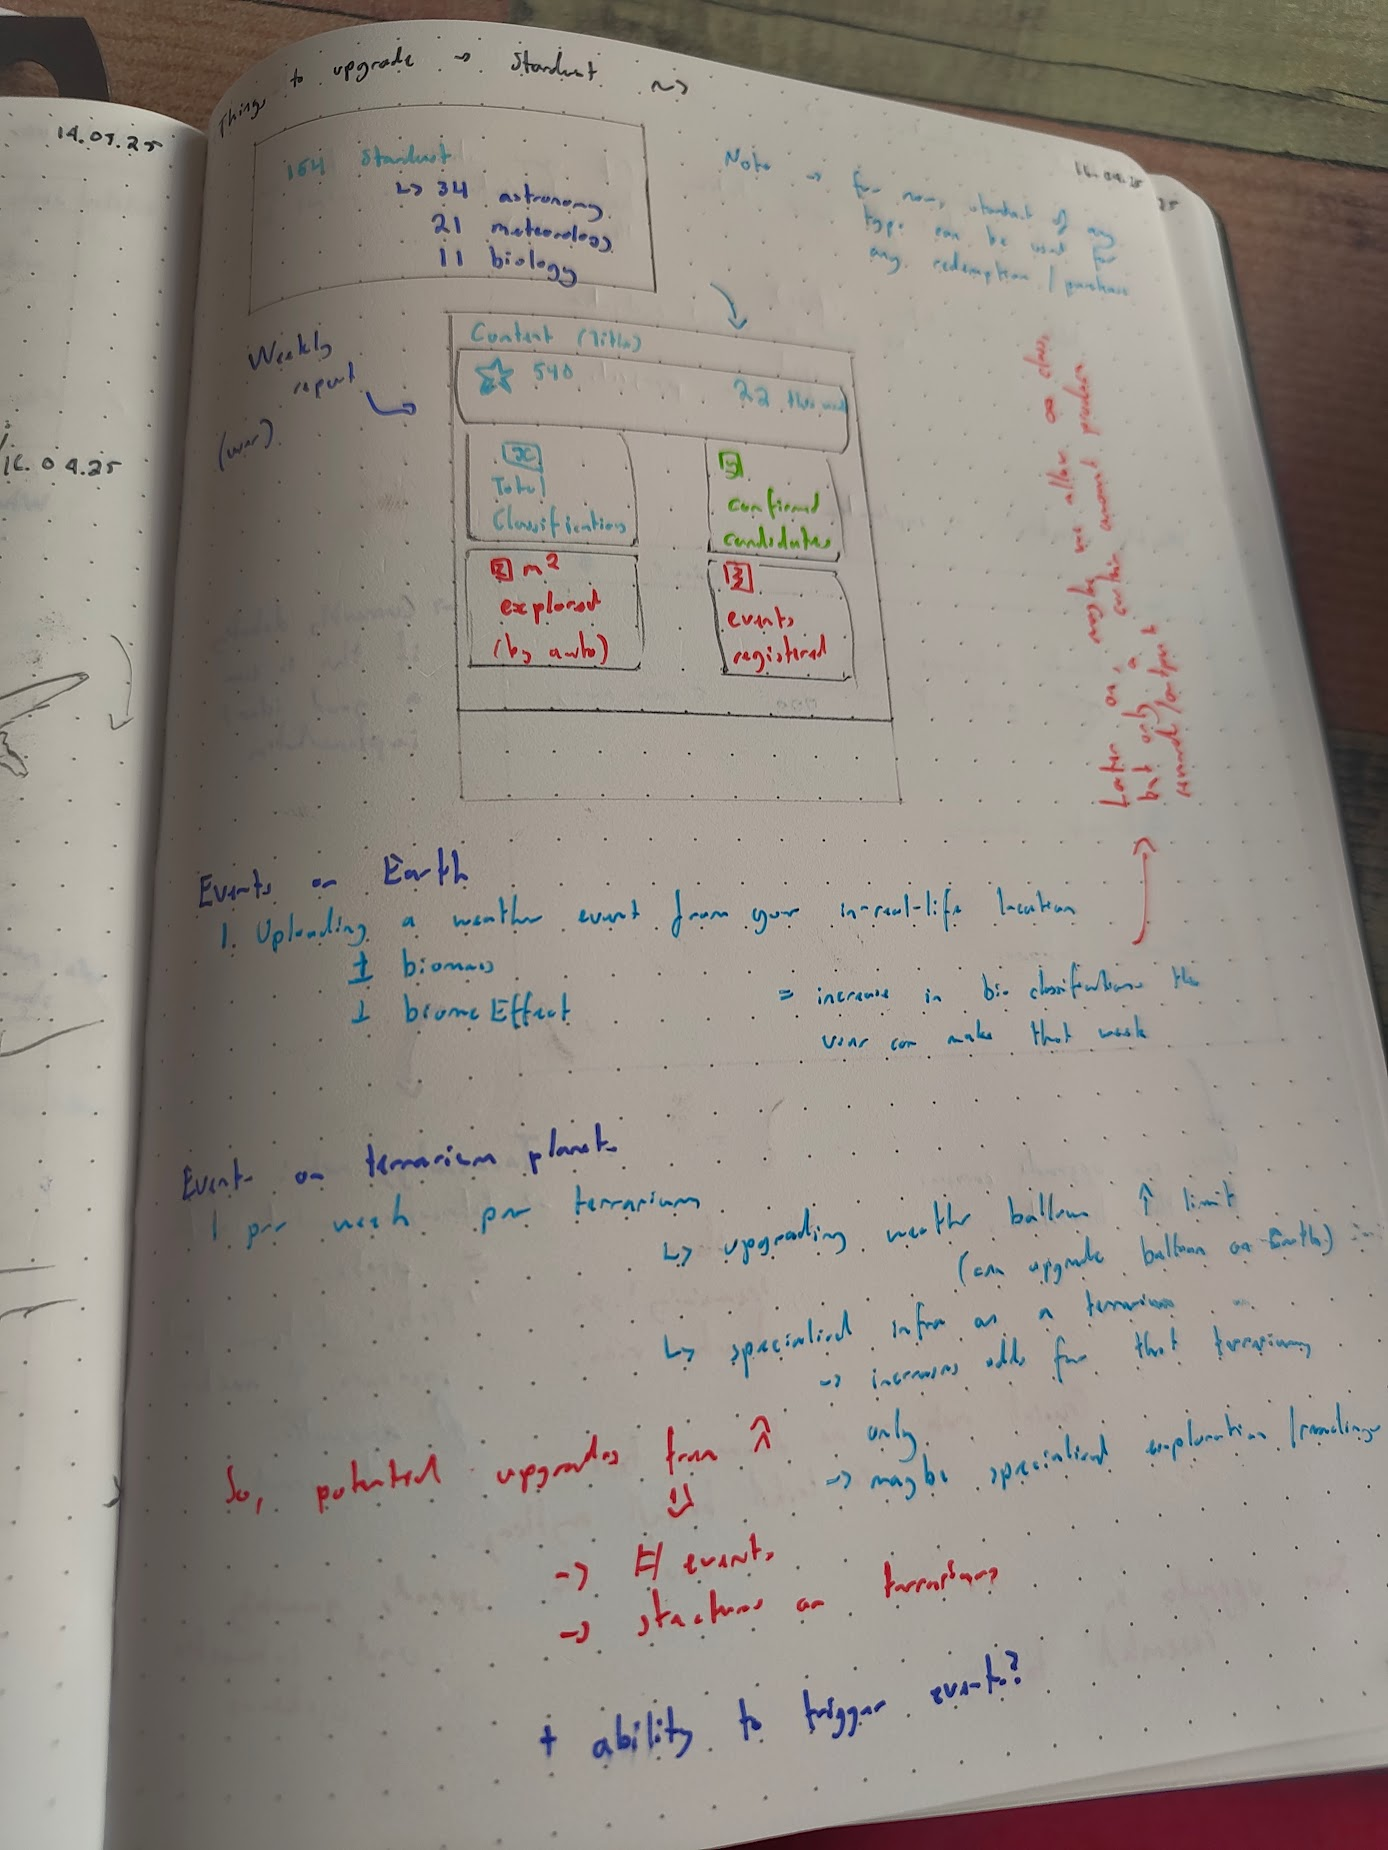 14.05.25
16.04.25
Things to upgrade → Stardust ~>
16.04.25
25
164 Stardust
↳ 34 astronomy
21 meteorology
11 biology
Note → for now, stardust of any
type can be used for
any redemption / purchase
Weekly
report
Content (Title)
☆ 540
22 this week
Total
Classifications
confirmed
candidates
m²
explored
(by auto)
events
registered
Later on, maybe we allow ∞ class,
but only a certain amount produce
reward/output
Events on Earth
1. Uploading a weather event from your in-real-life location
± biomass
biomeEffect
= increase in bio classifications the
user can make that week
Events on terrarium planets
1 per week per terrarium
↳ upgrading weather balloon ↑ limit
(can upgrade balloon on Earth)
↳ specialised infra on a terrarium
→ increases odds for that terrarium
only
→ maybe specialised exploration / readings
So, potential upgrades from ↑
↓
→ # events
→ structures on terrariums
+ ability to trigger events?